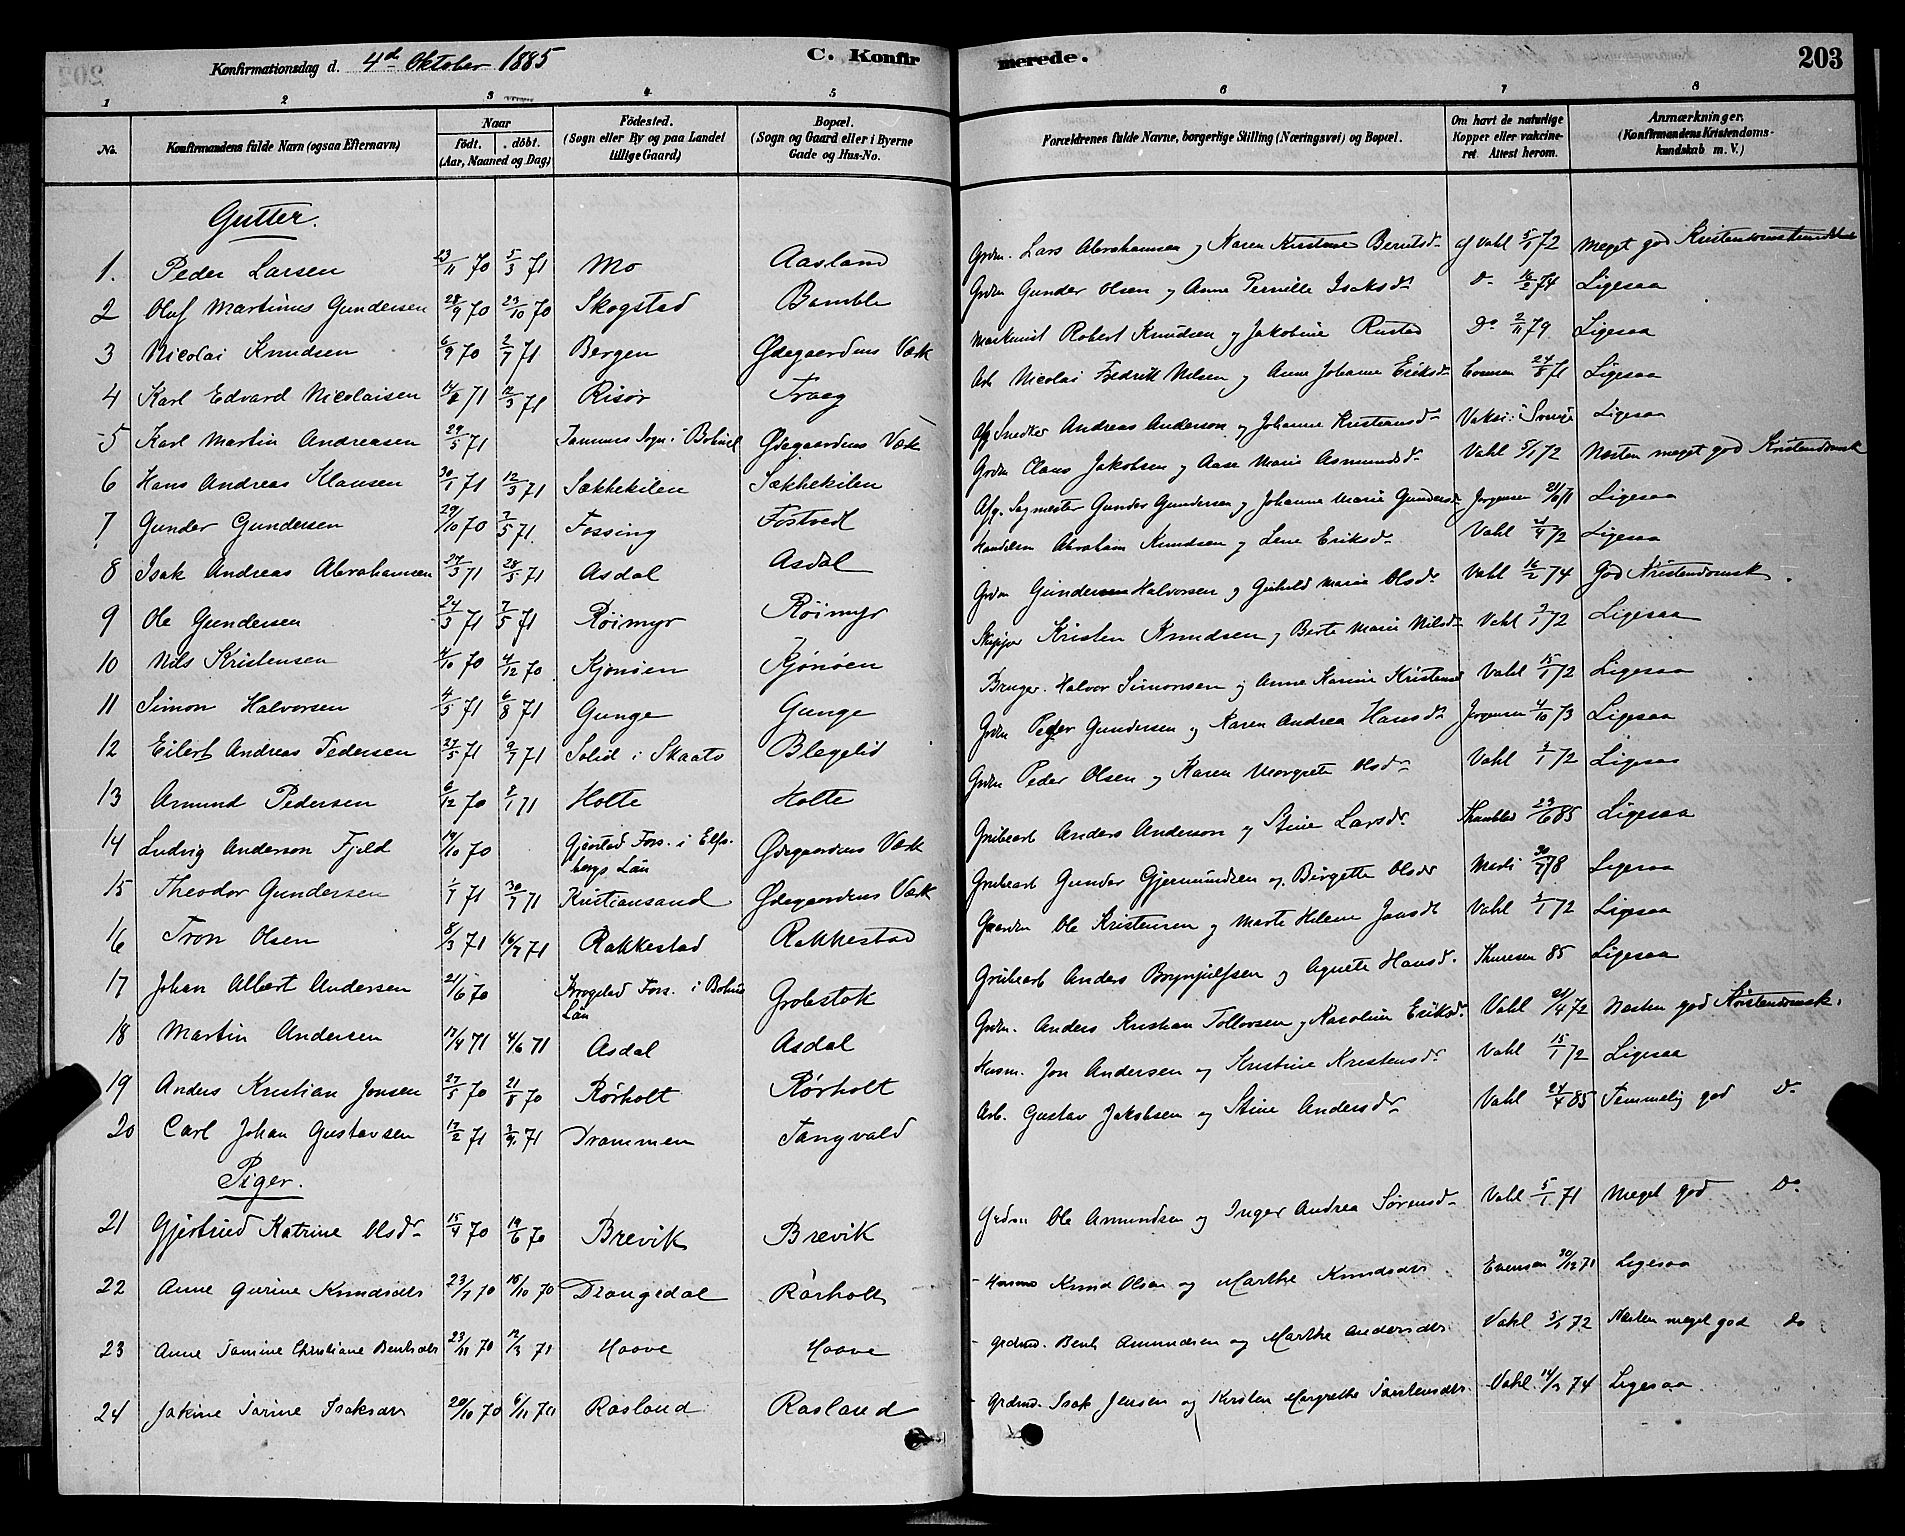 Konfirmationsdag d. 4de Oktober 1885 C. Konfirmerede. 203
1 2 3 4 5 6 7 8
No. Konfirmandens fulde Navn (ogsaa Efternavn) Naar födt. döbt. (Aar, Maaned og Dag) Födested. (Sogn eller By og paa Landet tillige Gaard) Bopæl. (Sogn og Gaard eller i Byerne Gade og Hus-No. Forældrenes fulde Navne, borgerlige Stilling (Næringsvei) og Bopæl. Om havt de naturlige Kopper eller vakcineret. Attest herom. Anmærkninger. (Konfirmandens Kristendomskundskab m. V.)
Gutter.
1. Peder Larsen 23/11 70 5/3 71 Mo Aasland Grdm. Lars Abrahamsen og Karen Kristine Berntsd. af Vahl 5/1 72 Meget god Kristendomskundskab
2 Oluf Martinus Gundersen 28/9 70 23/10 70 Skogstad Bamble Grdm Gunder Olsen og Anne Pernille Isaksdr Do 16/2 74 Ligesaa
3 Nicolai Knudsen 6/9 70 2/7 71 Bergen Ødegaardens Værk Maskinist Robert Knudsen og Jakobine Rustad Do 2/11 79 Ligesaa
4 Karl Edvard Nicolaisen 71 12/3 71 Risør Traag Arb Nicolai Fredrik Nilsen og Anne Johanne Eriksdr Evensen 24/8 71 Ligesaa
5 Karl Martin Andreasen 29/5 71 Tanums Sogn i Bohusl Ødegaardens Værk Afg Snedker Andreas Anderson og Johanne Kristiansdr Vaksi. i Sverige Ligesaa
6 Hans Andreas Klausen 30/1 71 12/3 71 Sækkekilen Sækkekilen Grdm Claus Jakobsen og Aase Marie Asmundsdr Vahl 5/1 72 Næsten meget god Kristendomsk
7 Gunder Gundersen 29/10 70 7/5 71 Fossing Fostvedt Afg. Sagmester Gunder Gundersen og Johanne Marie Gundersdr Jørgensen 21/10 71 Ligesaa
8 Isak Andreas Abrahamsen 27/3 71 28/5 71 Asdal Asdal Abraham Knudsen og Lene Eriksdr Vahl 4/4 72 Ligesaa
9 Ole Gundersen 24/3 71 7/5 71 Røimyr Røimyr Grdm Gundersen Halvorsen og Marie Olsdr Vahl 16/2 74 God Kristendomsk.
10 Nils Kristensen 4/10 70 4/12 70 Kjønøen Kjønøen Skipper Kristen Knudsen og Berte Marie Nilsdr Vahl 3/1 72 Ligesaa
11 Simon Halvorsen 4/5 71 6/8 71 Gunge Gunge Bruger. Halvor Simonsen og Anne Karine Kristensd Vahl 15/1 72 Ligesaa
12 Eilert Andreas Pedersen 27/5 71 9/7 71 Solid i Skaato Blegelid Grdm Peder Gundersen og Karen Andrea Hansdr Jørgensen 4/10 73 Ligesaa
13 Amund Pedersen 6/12 70 8/1 71 Holte Holte Grdm Peder Olsen og Karen Margrete Olsdr Vahl 3/1 72 Ligesaa
14 Ludvig Anderson Fjeld 14/10 70 Gjerstad Fors. i Elfsborgs Län Ødegaardens Værk Grubearb Anders Anderson og Stine Larsdr 23/6 85 Ligesaa
15 Theodor Gundersen 1/7 71 30/7 71 Kristiansand Ødegaardens Værk Grubearb Gunder Gjermundsen og Birgitte Olsdr 78 Ligesaa
16 Tron Olsen 8/3 71 16/7 71 Rakkestad Rakkestad Gaardm Ole Kristensen og Marte Helene Jonsdr Vahl 3/1 72 Ligesaa
17 Johan Albert Andersen 21/6 70 Krogstad Fors. i Bohus Län Grobstok Grubearb Anders Brynjulfsen og Agnete Hansd. Thuresen 85 Ligesaa
18 Martin Andersen 17/4 71 4/6 71 Asdal Asdal Grdm. Anders Kristian Tollevsen og Karoline Eriksdr Vahl 21/4 72 Næsten god Kristendomsk.
19 Anders Kristian Jonsen 27/5 70 21/8 70 Rørholt Rørholt Husm. Jon Andersen og Kristine Kristensdr Vahl 15/1 72 Ligesaa
20 Carl Johan Gustavsen 17/2 71 3/9 71 Drammen Tangvald Arb. Gustav Jakobsen og Stine Andersdr Vahl 24/4 85 Temmelig god Do
Piger.
21 Gjertrud Katrine Olsdr 15/4 70 19/6 70 Brevik Brevik Grdm Ole Amundsen og Inger Andrea Sørensdr Vahl 5/1 71 Meget god Do
22 Anne Gurine Knudsdtr 23/7 70 16/10 70 Drangedal Rørholt Husmd Knud Olsen og Marthe Knudsdtr Evensen 30/12 71 Ligesaa
23 Anne Tomine Christiane Bentsdtr 23/11 70 12/3 71 Hoove Hoove Grdmd. Bent Amundsen og Marthe Andersdtr Vahl 3/1 72 Næsten meget god do
24 Jakine Torine Isaksdtr 20/10 70 6/11 70 Rosland Rosland Grdmd. Isak Jensen og Kirsten Margrethe Torstensdtr Vahl 14/2 74 Ligesaa